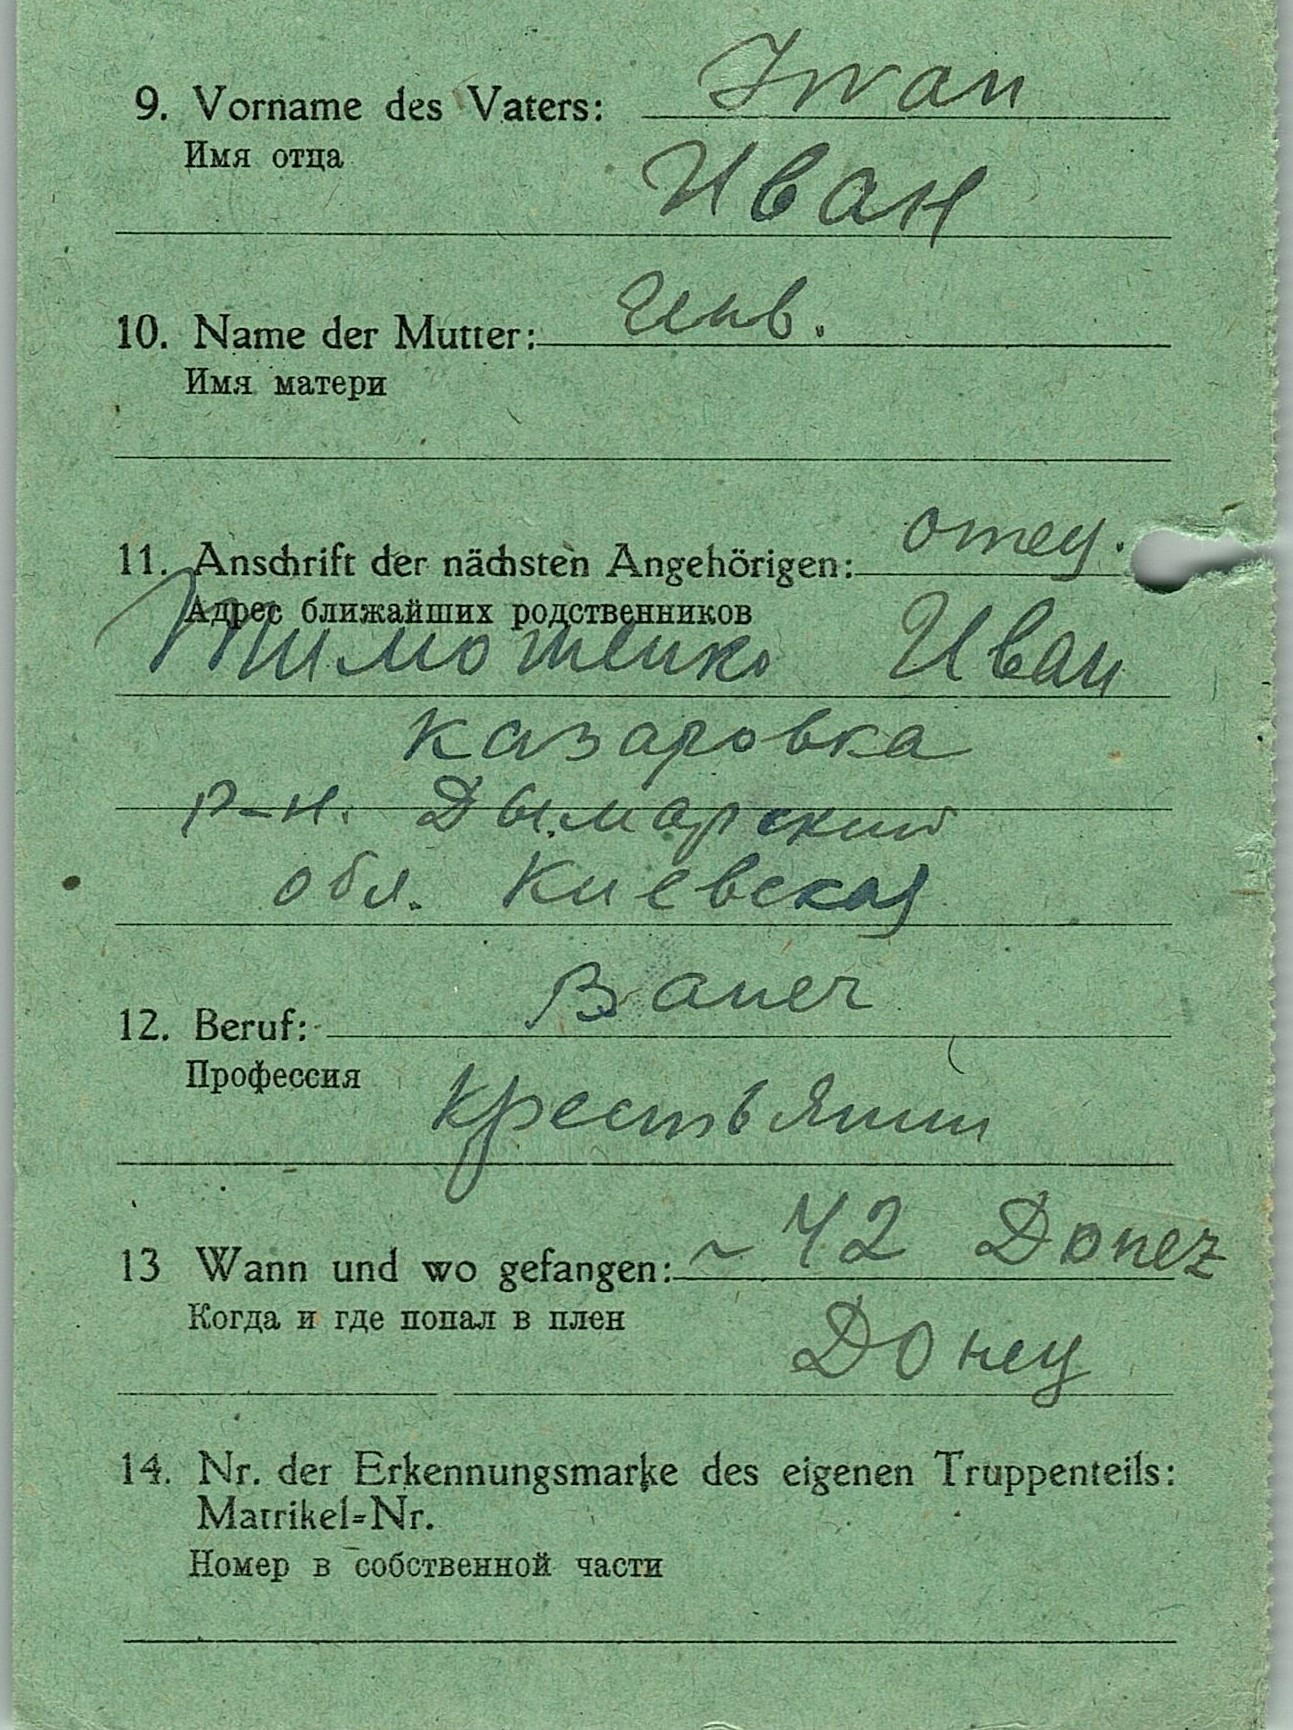 9. Vorname des Vaters: Iwan
Имя отца Иван
10. Name der Mutter:
Имя матери
11. Anschrift der nächsten Angehörigen: отец.
Адрес ближайших родственников
Тимошенко Иван
Казаровка
р-н. Дымарский
обл. Киевская
12. Beruf: Bauer
Профессия
Крестьянин
13 Wann und wo gefangen: ~ 42 Donez
Когда и где попал в плен
Донец
14. Nr. der Erkennungsmarke des eigenen Truppenteils:
Matrikel=Nr.
Номер в собственной части